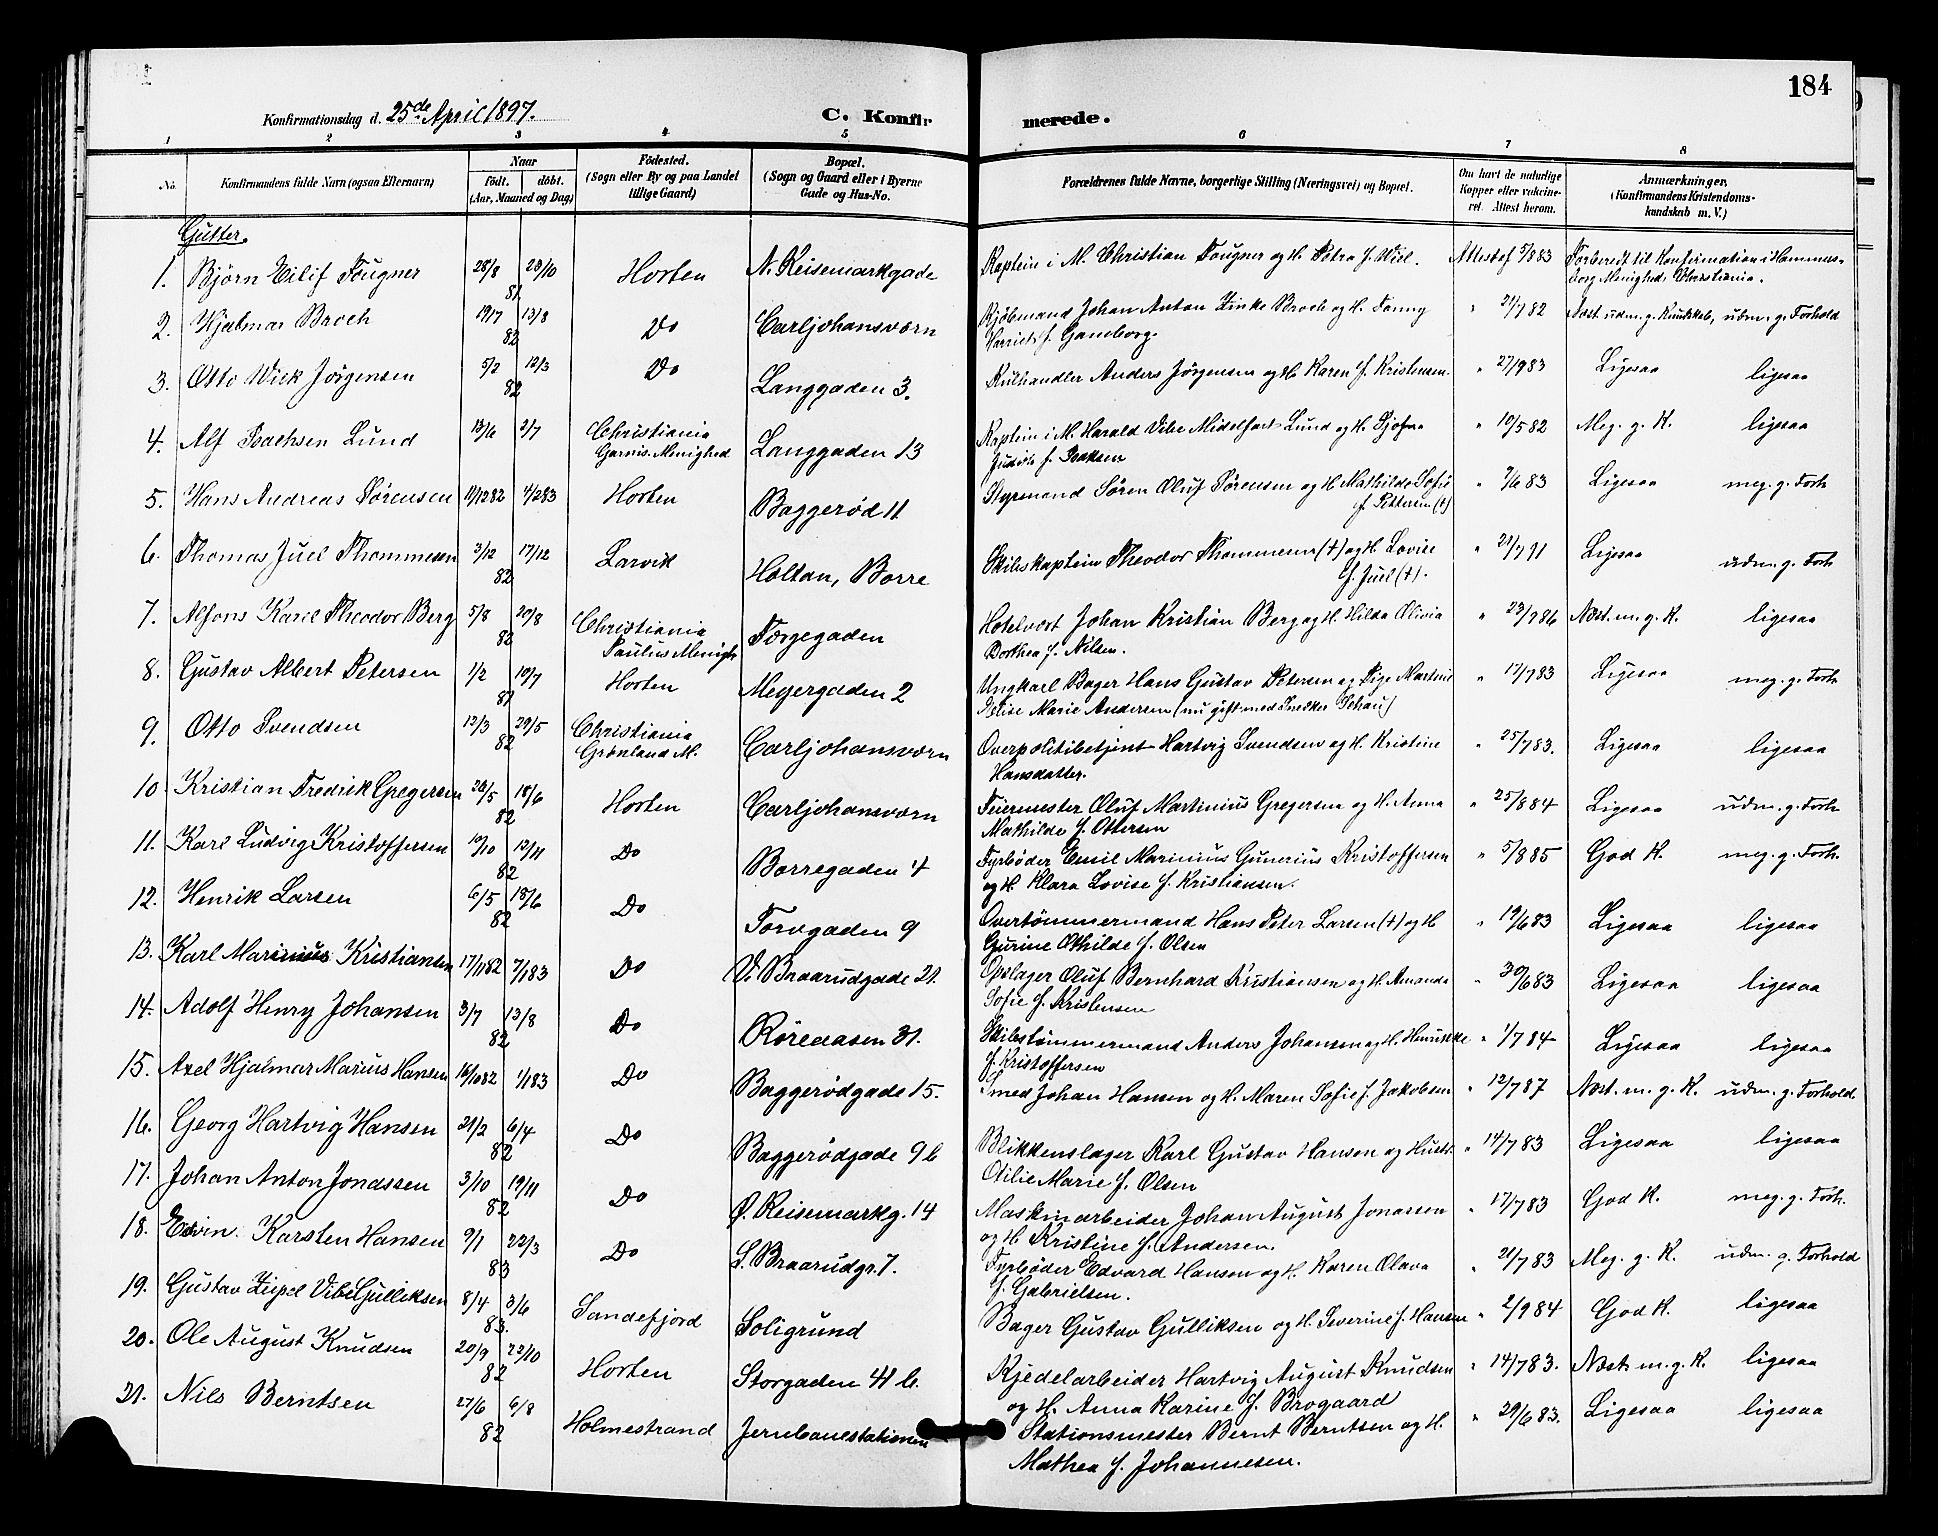 184
Konfirmationsdag d. 25de April 1897.
C. Konfirmerede.
1 2 3 4 5 6 7 8
No. Konfirmandens fulde Navn (ogsaa Efternavn) Naar født. døbt. (Aar, Maaned og Dag) Födested. (Sogn eller By og paa Landet tillige Gaard) Bopæl. (Sogn og Gaard eller i Byerne Gade og Hus-No. Forældrenes fulde Navne, borgerlige Stilling (Næringsvei) og Bopæl. Om havt de naturlige Kopper eller vakcineret. Attest herom. Anmærkninger. (Konfirmandens Kristendomskundskab m. V.)
Gutter.
1. Bjørn Eilif Fougner 28/8 23/10 81 Horten N. Reisemarkgade Kaptein i M. Christian Fougner og H. Petra f. Wiel. Attest af 5/8 83 Forberedt til Konfirmation i Hammersborg Menighed, Christiania.
2. Hjalmar Broch 19/7 13/8 82 Do Carljohansværn Kjøbmand Johan Anton Zinke Broch og H. Fanny Harriet f. Gamborg. " 21/7 82 Næst. udm. g. Kundskab, udm. g. Forhold
3. Otto Wiek Jørgensen 5/2 12/3 82 Do Langgaden 3. Kulhandler Anders Jørgensen og H. Karen f. Kristensen. " 27/9 83 Ligesaa ligesaa
4. Alf Isachsen Lund 13/6 2/7 Christiania Garnis. Menighed Langgaden 13 Kaptein i M. Harald Vibe Midelfart Lund og H. Judith f. Isaksen " 10/5 82 Meg. g. K. ligesaa
5. Hans Andreas Sørensen 11/12 82 4/2 83 Horten Baggerød 11. Styrmand Søren Oluf Sørensen og H. Mathilde Sofie f. Pettersen (†) " 7/6 83 Ligesaa meg. g. Forh.
6. Thomas Juel Thommesen 3/12 17/12 82 Larvik Holtan, Borre Skibskaptein Theodor Thommesen (†) og H. Lovise f. Juel (†). " 21/7 91 Ligesaa udm. g. Forh
7. Alfons Karel Theodor Berg 5/8 20/8 82 Christiania Paulus Menigh Færgegaden Hotelvært Johan Kristian Berg og H. Hilda Olivia Dorthea f. Nilsen. " 23/7 86 Næst. m. g. K. ligesaa
8. Gustav Albert Petersen 1/2 10/7 81 Horten Meyergaden 2 Ungkarl Bager Hans Gustav Petersen og Pige Martine Elise Marie Andersen (nu gift med Snedker Schau) " 17/7 83 Ligesaa meg. g. Forh
9. Otto Svendsen 12/3 29/5 82 Christiania Grønland M. Carljohansværn Overpolitibetjent Hartvig Svendsen og H. Kristine Hansdatter. " 25/7 83. Ligesaa ligesaa
10. Kristian Fredrik Gregersen 26/5 18/6 82 Horten Carljohansværn Feiermester Oluf Martinius Gregersen og H. Anna Mathilde f. Ottersen " 25/8 84 Ligesaa udm. g. Forh
11. Karl Ludvig Kristoffersen 10/10 12/11 82 Do Borregaden 4 Fyrbøder Emil Marinius Gunerius Kristoffersen og H. Klara Lovise f. Kristiansen. " 5/8 85 God K. meg. g. Forh.
12. Henrik Larsen 6/5 18/6 82 Do Torvgaden 9 Overtømmermand Hans Peter Larsen (†) og H Gurine Othilde f. Olsen " 19/6 83 Ligesaa ligesaa
13. Karl Marinius Kristiansen 17/11 82 7/1 83 Do V. Braarudgade 21. Opslager Oluf Bernhard Kristiansen og H. Amanda Sofie f. Kristensen " 30/6 83 Ligesaa ligesaa
14. Adolf Henry Johansen 3/7 13/8 82 Do Røreaasen 31. Skibstømmermand Anders Johansen og H. Henrikke f. Kristoffersen " 1/7 84 Ligesaa ligesaa
15. Axel Hjalmar Marius Hansen 16/10 82 1/1 83 Do Baggerødgade 15. Smed Johan Hansen og H. Maren Sofie f. Jakobsen " 12/7 87 Næst. m. g. K. udm. g. Forhold.
16. Georg Hartvig Hansen 21/2 6/4 82 Do Baggerødgade 9b Blikkenslager Karl Gustav Hansen og Hustr. Otilie Marie f. Olsen " 14/7 83 Ligesaa ligesaa
17. Johan Anton Jonassen 3/10 19/11 82 Do Ø. Reisemarkg. 14 Maskinarbeider Johan August Jonassen og H. Kristine f. Andersen. " 17/7 83 God K. meg. g. Forh.
18. Edvin Karsten Hansen 9/1 22/3 83 Do S. Braarudgr. 7. Fyrbøder Edvard Hansen og H. Karen Olava f. Gabrielsen. " 21/7 83 Meg. g. K. udm. g. Forhold
19. Gustav Zeipel Vibe Gulliksen 8/4 3/6 83. Sandefjord Soligrund Bager Gustav Gulliksen og H. Severine f. Hansen " 2/9 84 God K. ligesaa
20. Ole August Knudsen 20/9 22/10 82 Horten Storgaden 41 b. Kjedelarbeider Hartvig August Knudsen og H. Anna Karine f. Brogaard " 14/7 83. Næst. m. g. K. ligesaa
21. Nils Berntsen 27/6 6/8 82 Holmestrand Jernbanestationen Stationsmester Bernt Berntsen og H. Mathea f. Johannesen. " 29/6 83. Ligesaa ligesaa